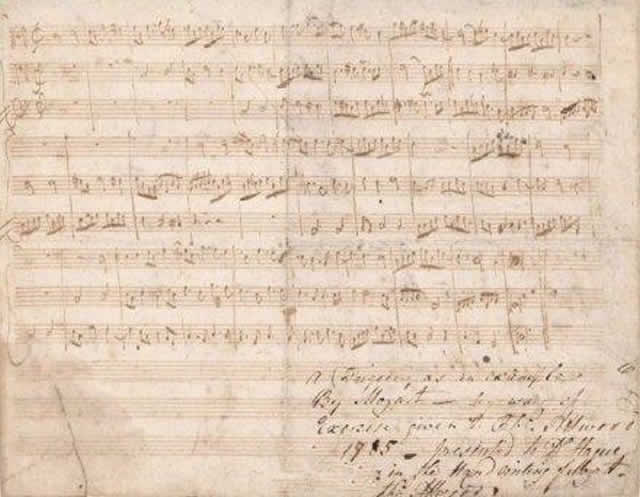 a Fugue, as an example
By Mozart — by way of
Exercise given to Thos. Attwood
1785 — presented to Dr Hague
in the Hand writing of Mozart
Thos Attwood